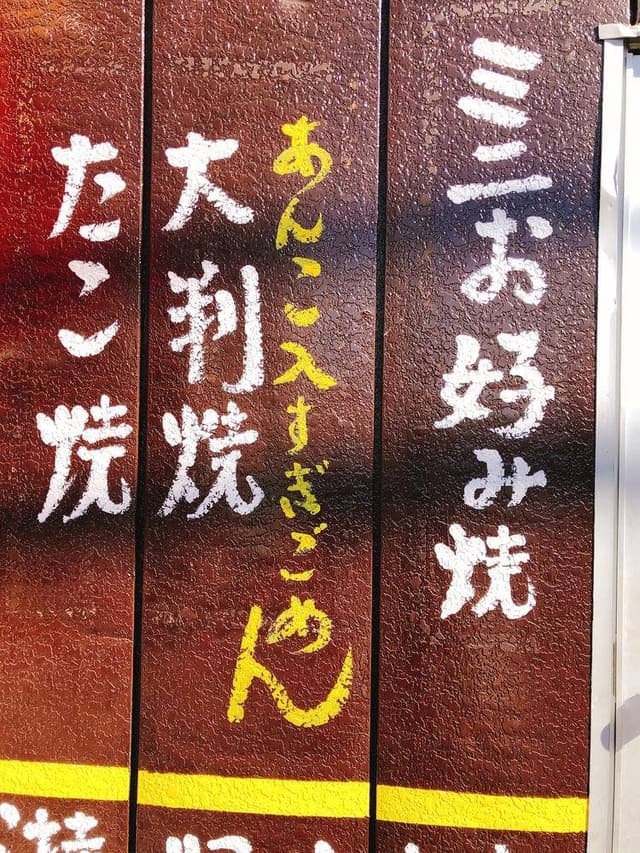 ミニお好み焼
あんこ入すぎごめん
大判焼
たこ焼